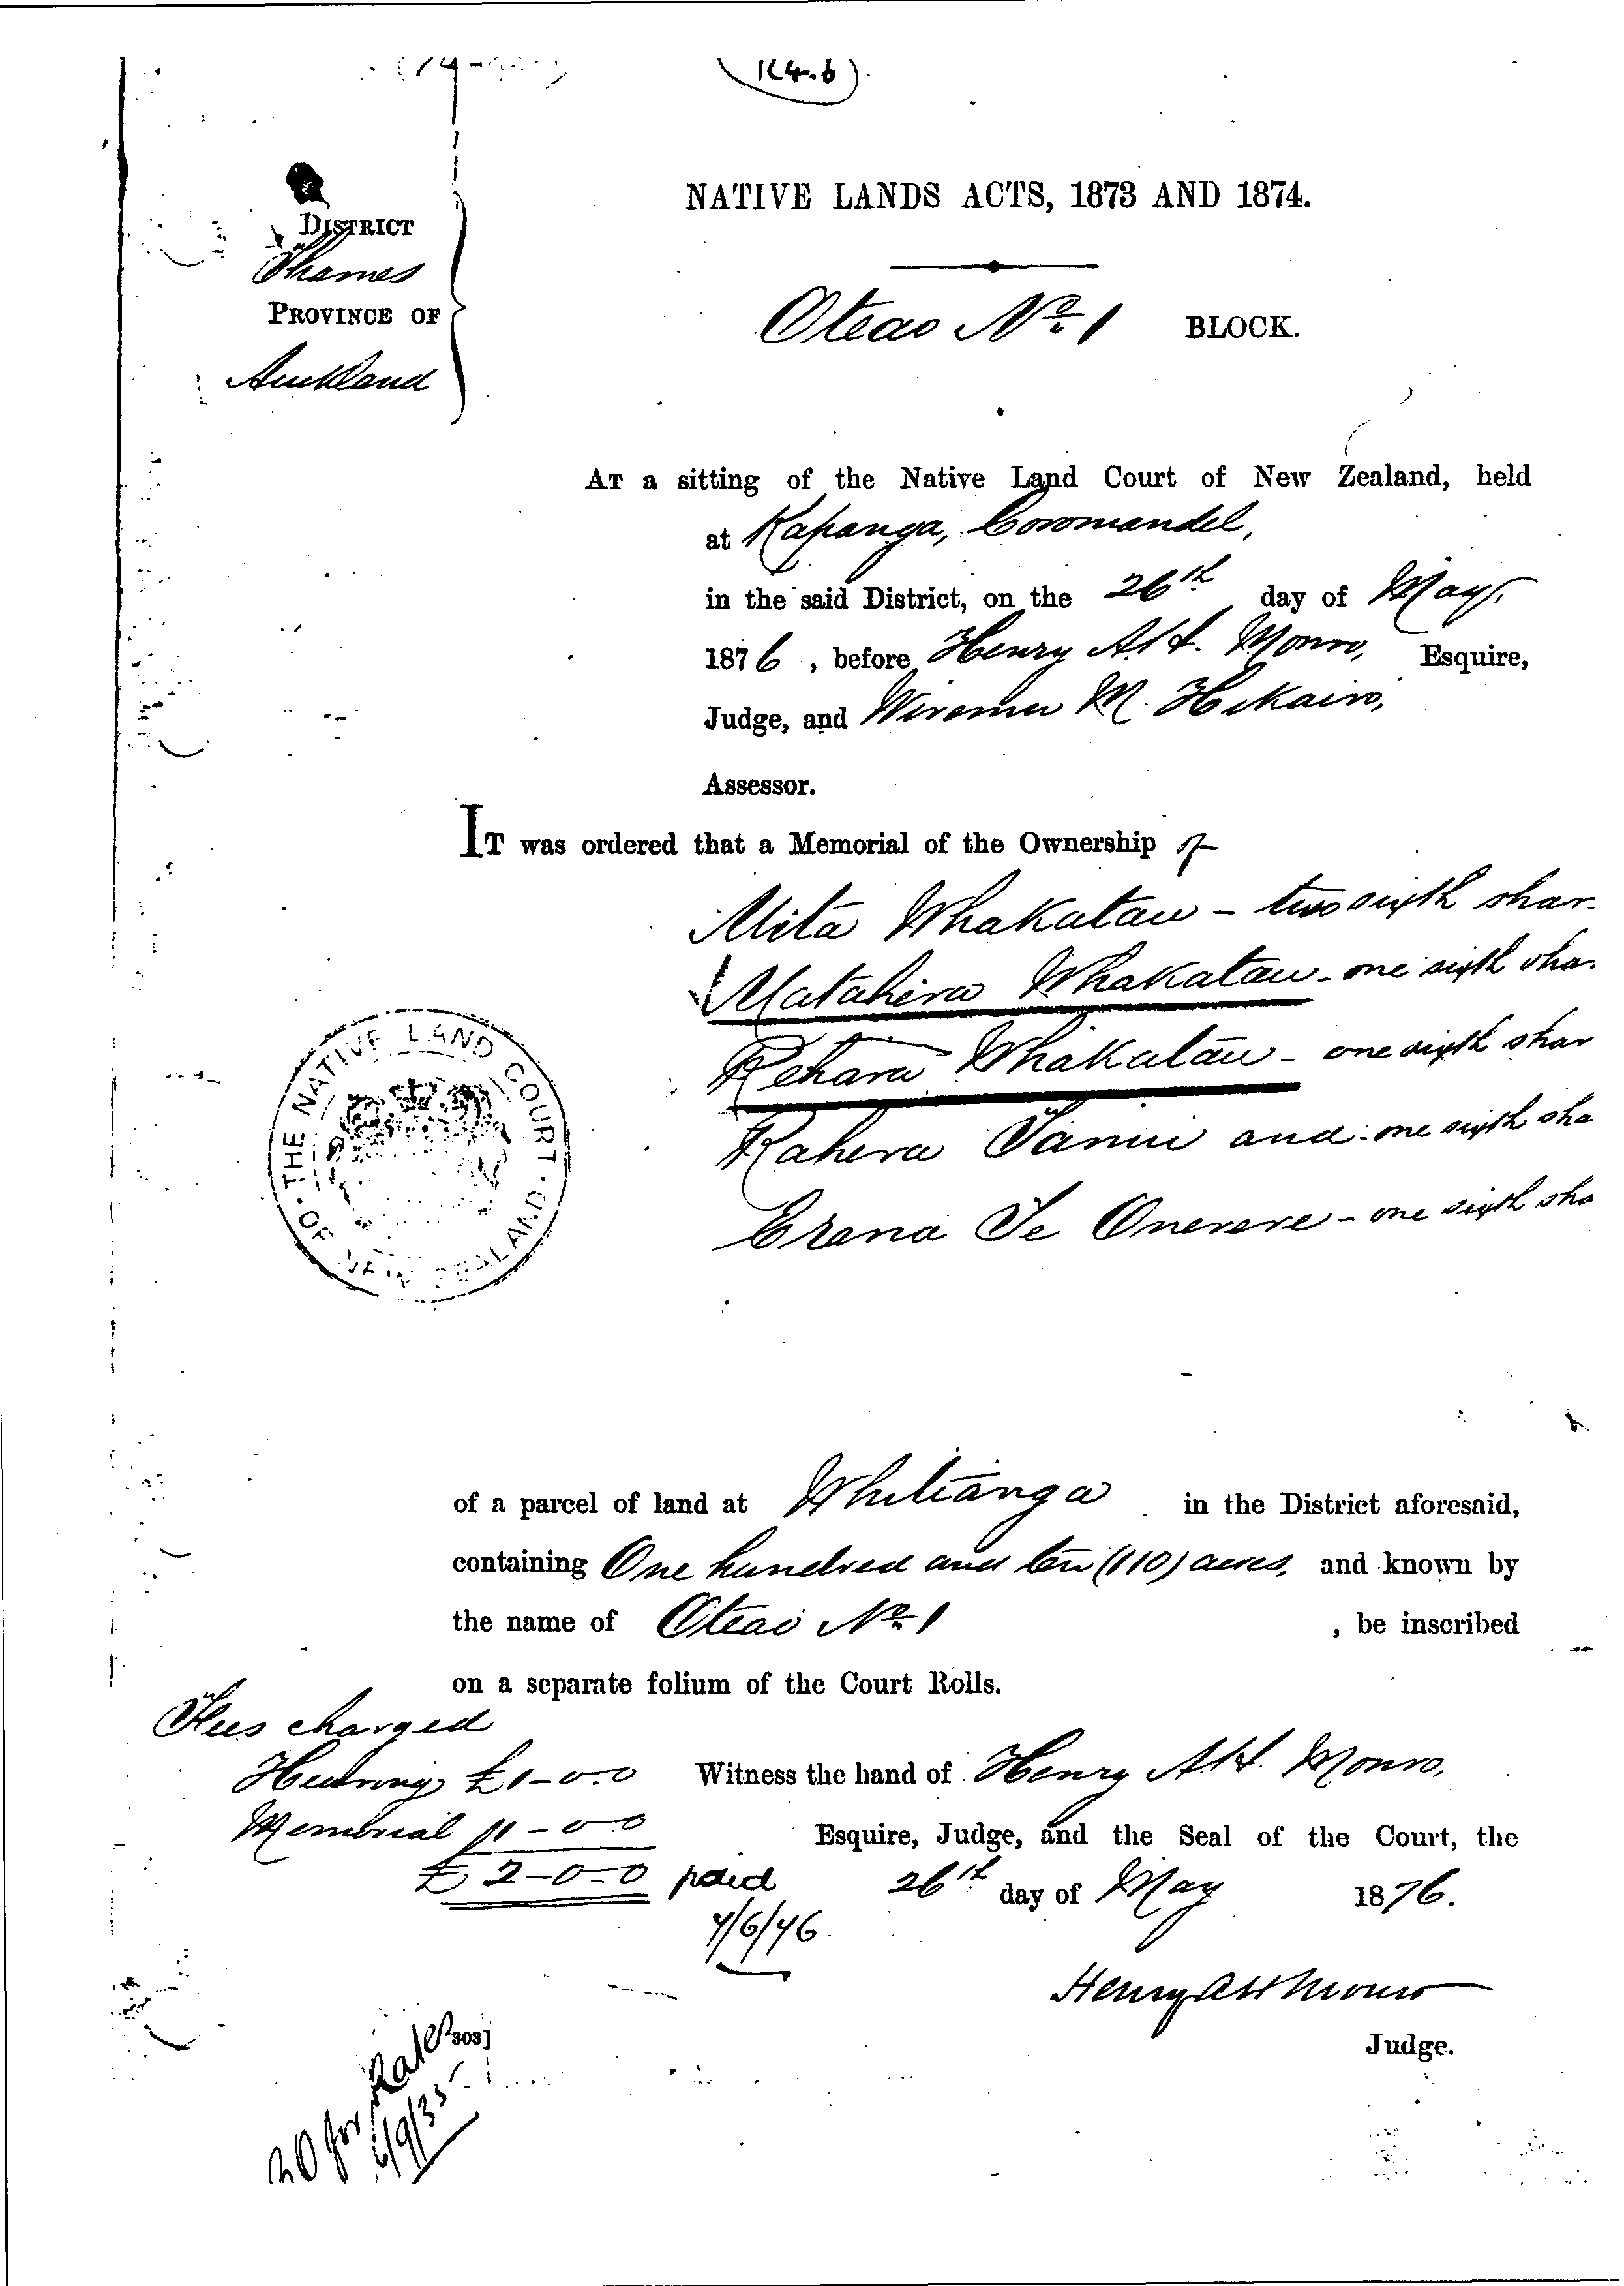 (14.b)
NATIVE LANDS ACTS, 1873 AND 1874.
DISTRICT
Thames
PROVINCE OF
Auckland
Oteao No. 1 BLOCK.
AT a sitting of the Native Land Court of New Zealand, held
at Kapanga, Coromandel,
in the said District, on the 26th day of May,
1876, before Henry A. H. Monro, Esquire,
Judge, and Wiremu M. Hikairo,
Assessor.
IT was ordered that a Memorial of the Ownership of
Mita Whakatau - two sixth shar
Matahera Whakatau - one sixth sha
Retara Whakatau - one sixth shar
Rahera Tanui and - one sixth sha
Erana Te Onerere - one sixth sha
THE NATIVE LAND COURT OF NEW ZEALAND
of a parcel of land at Whitianga in the District aforesaid,
containing One hundred and ten (110) acres, and known by
the name of Oteao No. 1 , be inscribed
on a separate folium of the Court Rolls.
Fees charged
Hearing £1-0-0
Memorial 1-0-0
£2-0-0 paid
7/6/76
Witness the hand of Henry A. H. Monro,
Esquire, Judge, and the Seal of the Court, the
26th day of May 1876.
Henry A H Monro
Judge.
303]
20 for Rates
6/9/35